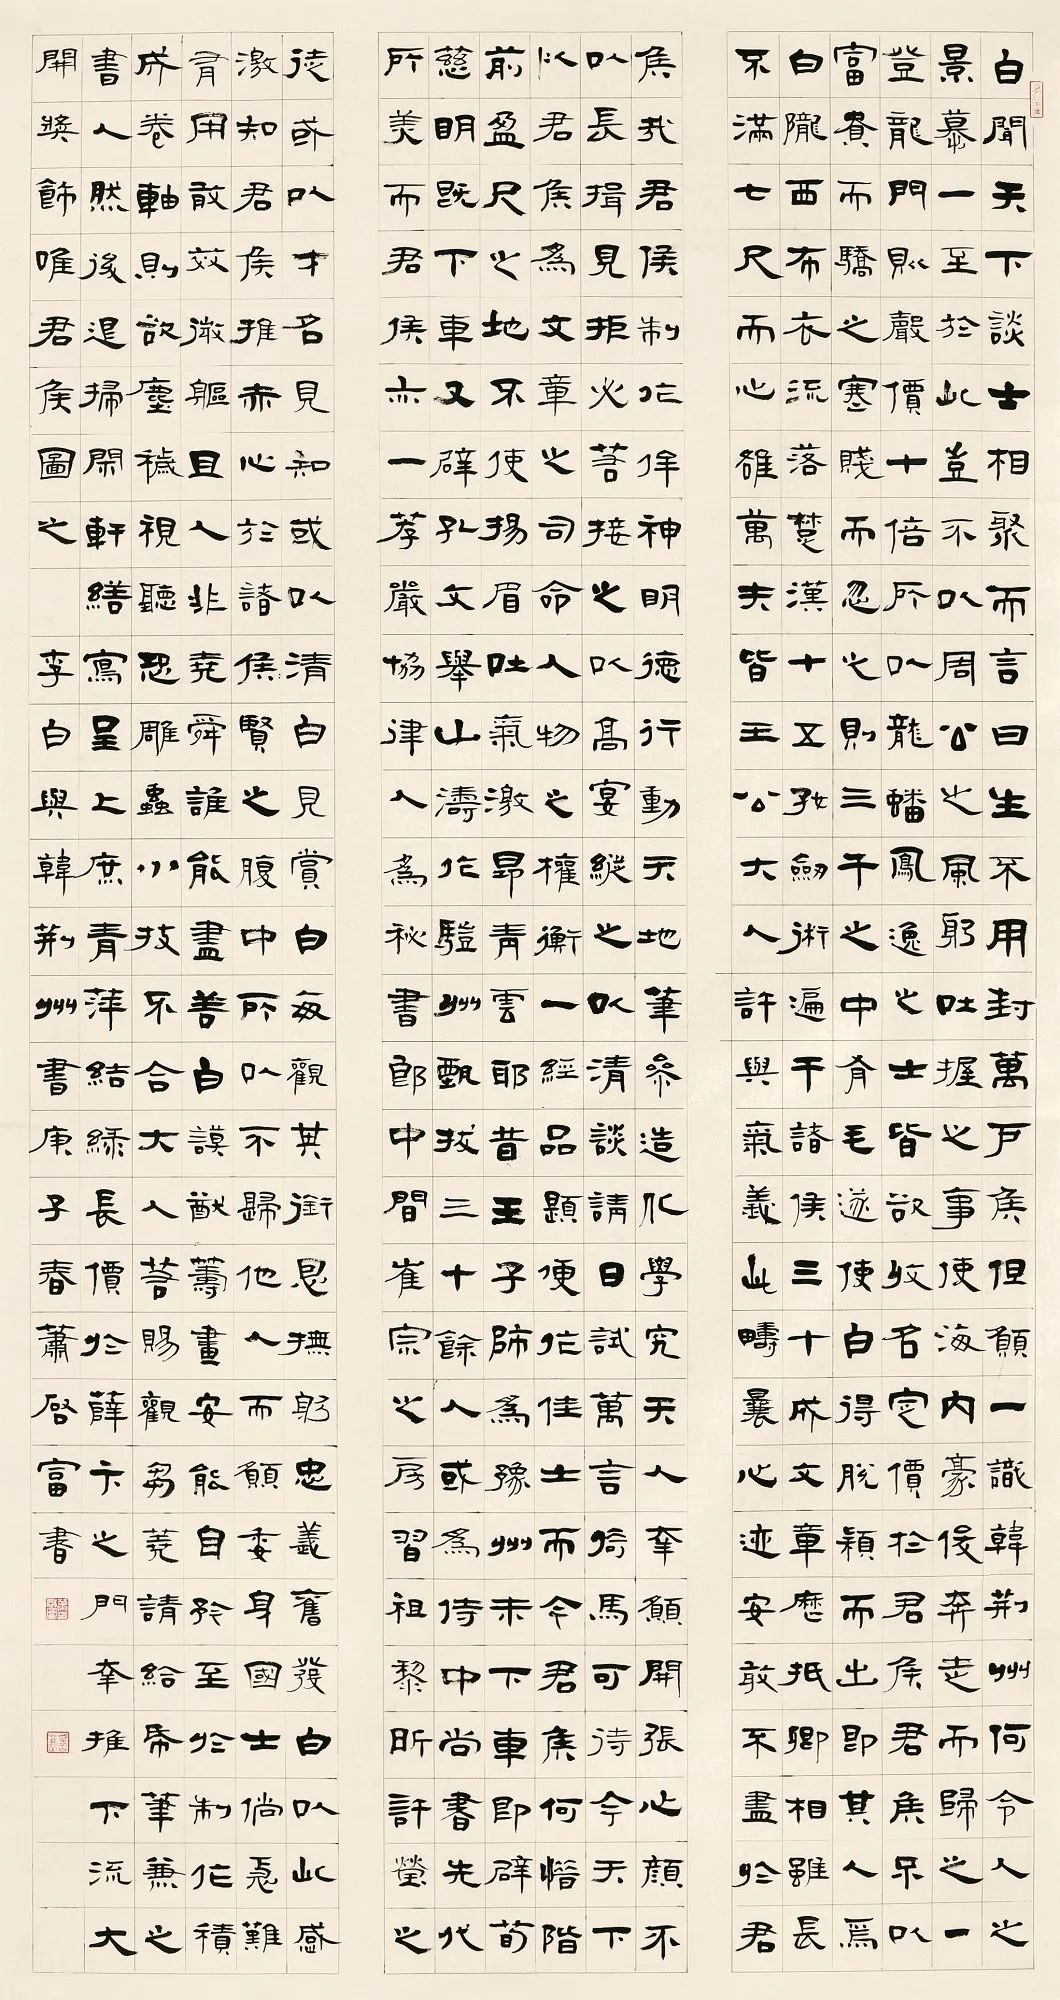 白聞天下談士相聚而言曰生不用封萬戶侯但願一識韓荊州何令人之
景慕一至於此豈不以周公之風躬吐握之事使海內豪俊奔走而歸之一
登龍門則聲價十倍所以龍蟠鳳逸之士皆欲收名定價於君侯君侯不以
富貴而驕之寒賤而忽之則三千之中有毛遂使白得脫穎而出即其人焉
白隴西布衣流落楚漢十五好劍術遍干諸侯三十成文章歷抵卿相雖長
不滿七尺而心雄萬夫皆王公大人許與氣義此疇曩心迹安敢不盡於君
侯哉君侯制作侔神明德行動天地筆參造化學究天人幸願開張心顏不
以長揖見拒必若接之以高宴縱之以清談請日試萬言倚馬可待今天下
以君侯為文章之司命人物之權衡一經品題便作佳士而今君侯何惜階
前盈尺之地不使揚眉吐氣激昂青雲耶昔王子師為豫州未下車即辟荀
慈明既下車又辟孔文舉山濤作冀州甄拔三十餘人或為侍中尚書先代
所美而君侯亦一薦嚴協律入為秘書郎中間崔宗之房習祖黎昕許瑩之
徒或以才名見知或以清白見賞白每觀其銜恩撫躬忠義奮發白以此感
激知君侯推赤心於諸侯賢之腹中所以不歸他人而願委身國士倘急難
有用敢效微軀且人非堯舜誰能盡善白謨猷籌畫安能自矜至於制作積
成卷軸則欲塵穢視聽恐雕蟲小技不合大人若賜觀芻蕘請給帋筆兼之
書人然後退掃閑軒繕寫呈上庶青萍結綠長價於薛卞之門幸推下流大
開獎飾唯君侯圖之 李白與韓荊州書庚子春蕭啟富書